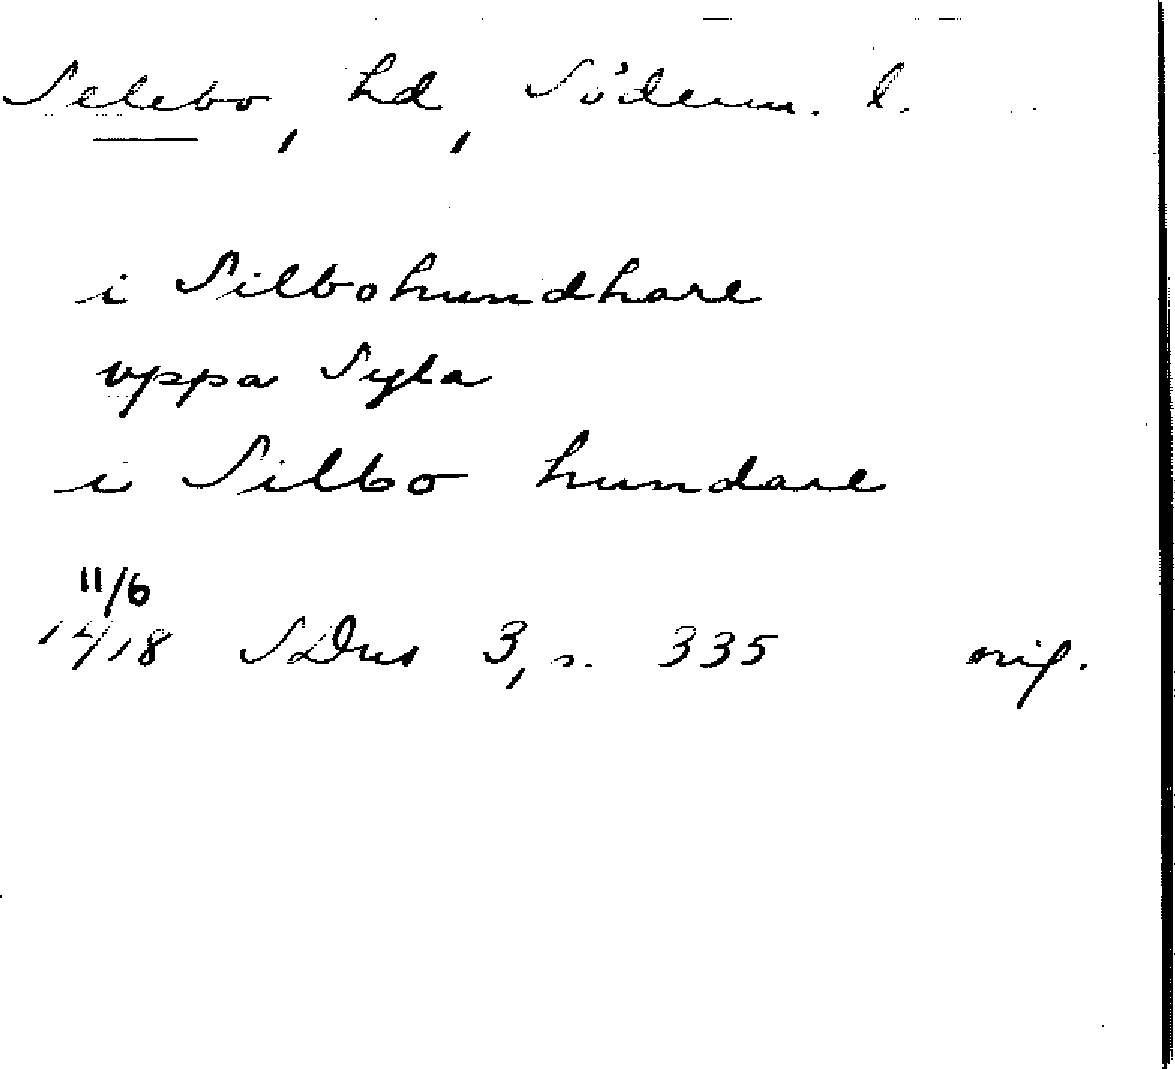 Selebo, hd, Söderm. l.
i Silbohundhare
vppa Syla
i Silbo hundare
11/6
1418 SDns 3, s. 335 orig.